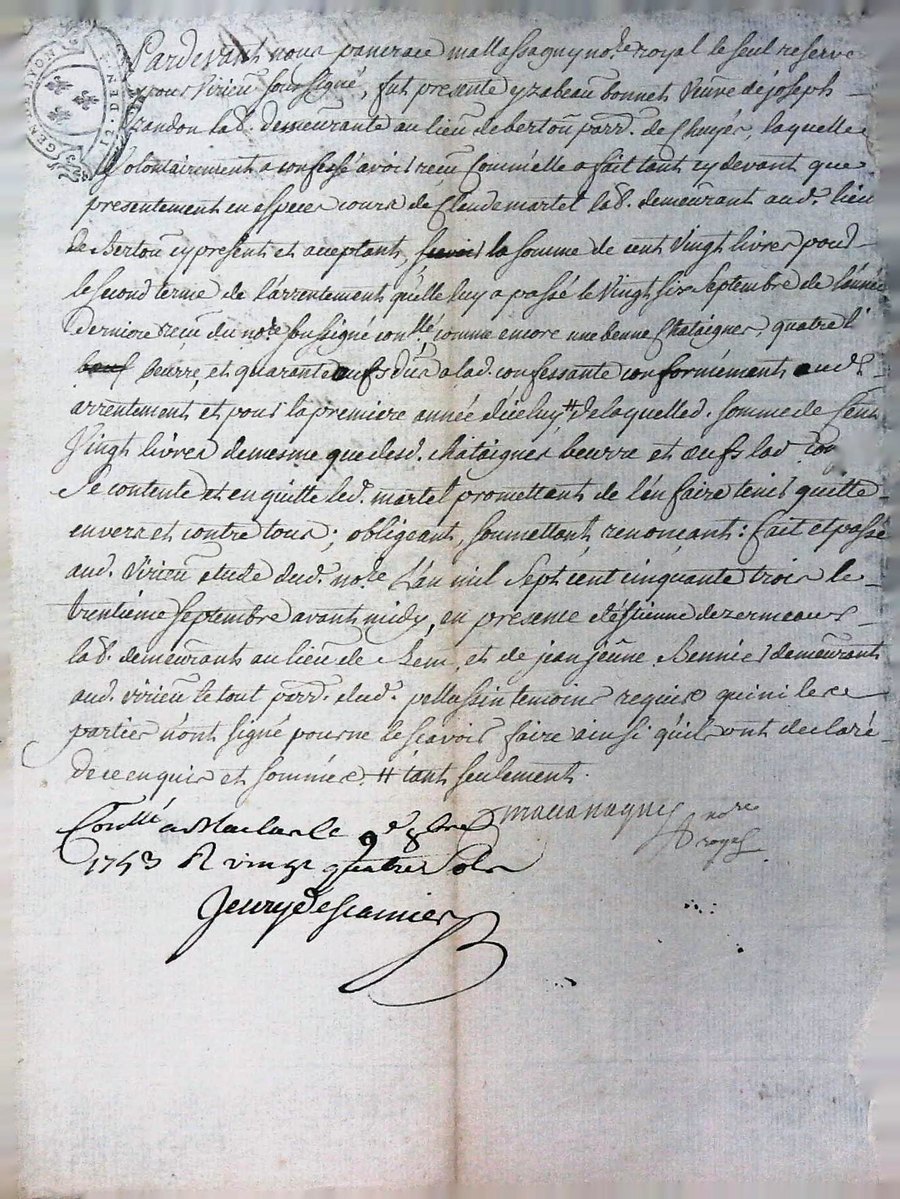 GEN LYON
Pardevant nous pancrace mallassagny no.re royal le seul reservé
pour Virieu soussigné, fut presente yzabeau bonnet Veuve de joseph
randon lad. demeurante au lieu de bertou parr. de Chuyer, laquelle
Volontairement a confessé avoir reçu Comm'elle a fait tant cy devant que
presentement en especes cours de Claude martel lab. demeurant aud. lieu
de Bertou cy present et acceptant, la somme de cent Vingt livres pour
le second terme de l'arrentement qu'elle luy a passé le Vingt six Septembre de l'année
derniere reçu du no.re soussigné con.llé, comme encore une benne Chataignes, quatre l.
beurre, et quarante œufs dus a lad. confessante conformément aud.
arrentement et pour la premiere année diceluy # de laquelle d. somme de Cent
Vingt livres de mesme que desd. chataignes beurre et œufs lad.
Se contente et en quitte led. martel promettant de l'en faire tenir quitte
envers et contre tous; obligeant, soumettant, renonçant: fait et passé
aud. Virieu etude dud. no.re L'an mil Sept cent cinquante trois le
trentième Septembre avant midy, en presence d'éstienne dezermeaux
lab. demeurant au lieu de et de jean jeune demeurant
aud. virieu le tout parr. dud. pellussin temoins requis qui ni les
parties n'ont signé pour ne le scavoir faire ainsi qu'ils ont declaré
de ce enquis et sommés. # tant seulement.
no.re
royal
Con.llé a Maclas le 9e 8bre
1753 R vingt quatre Sols